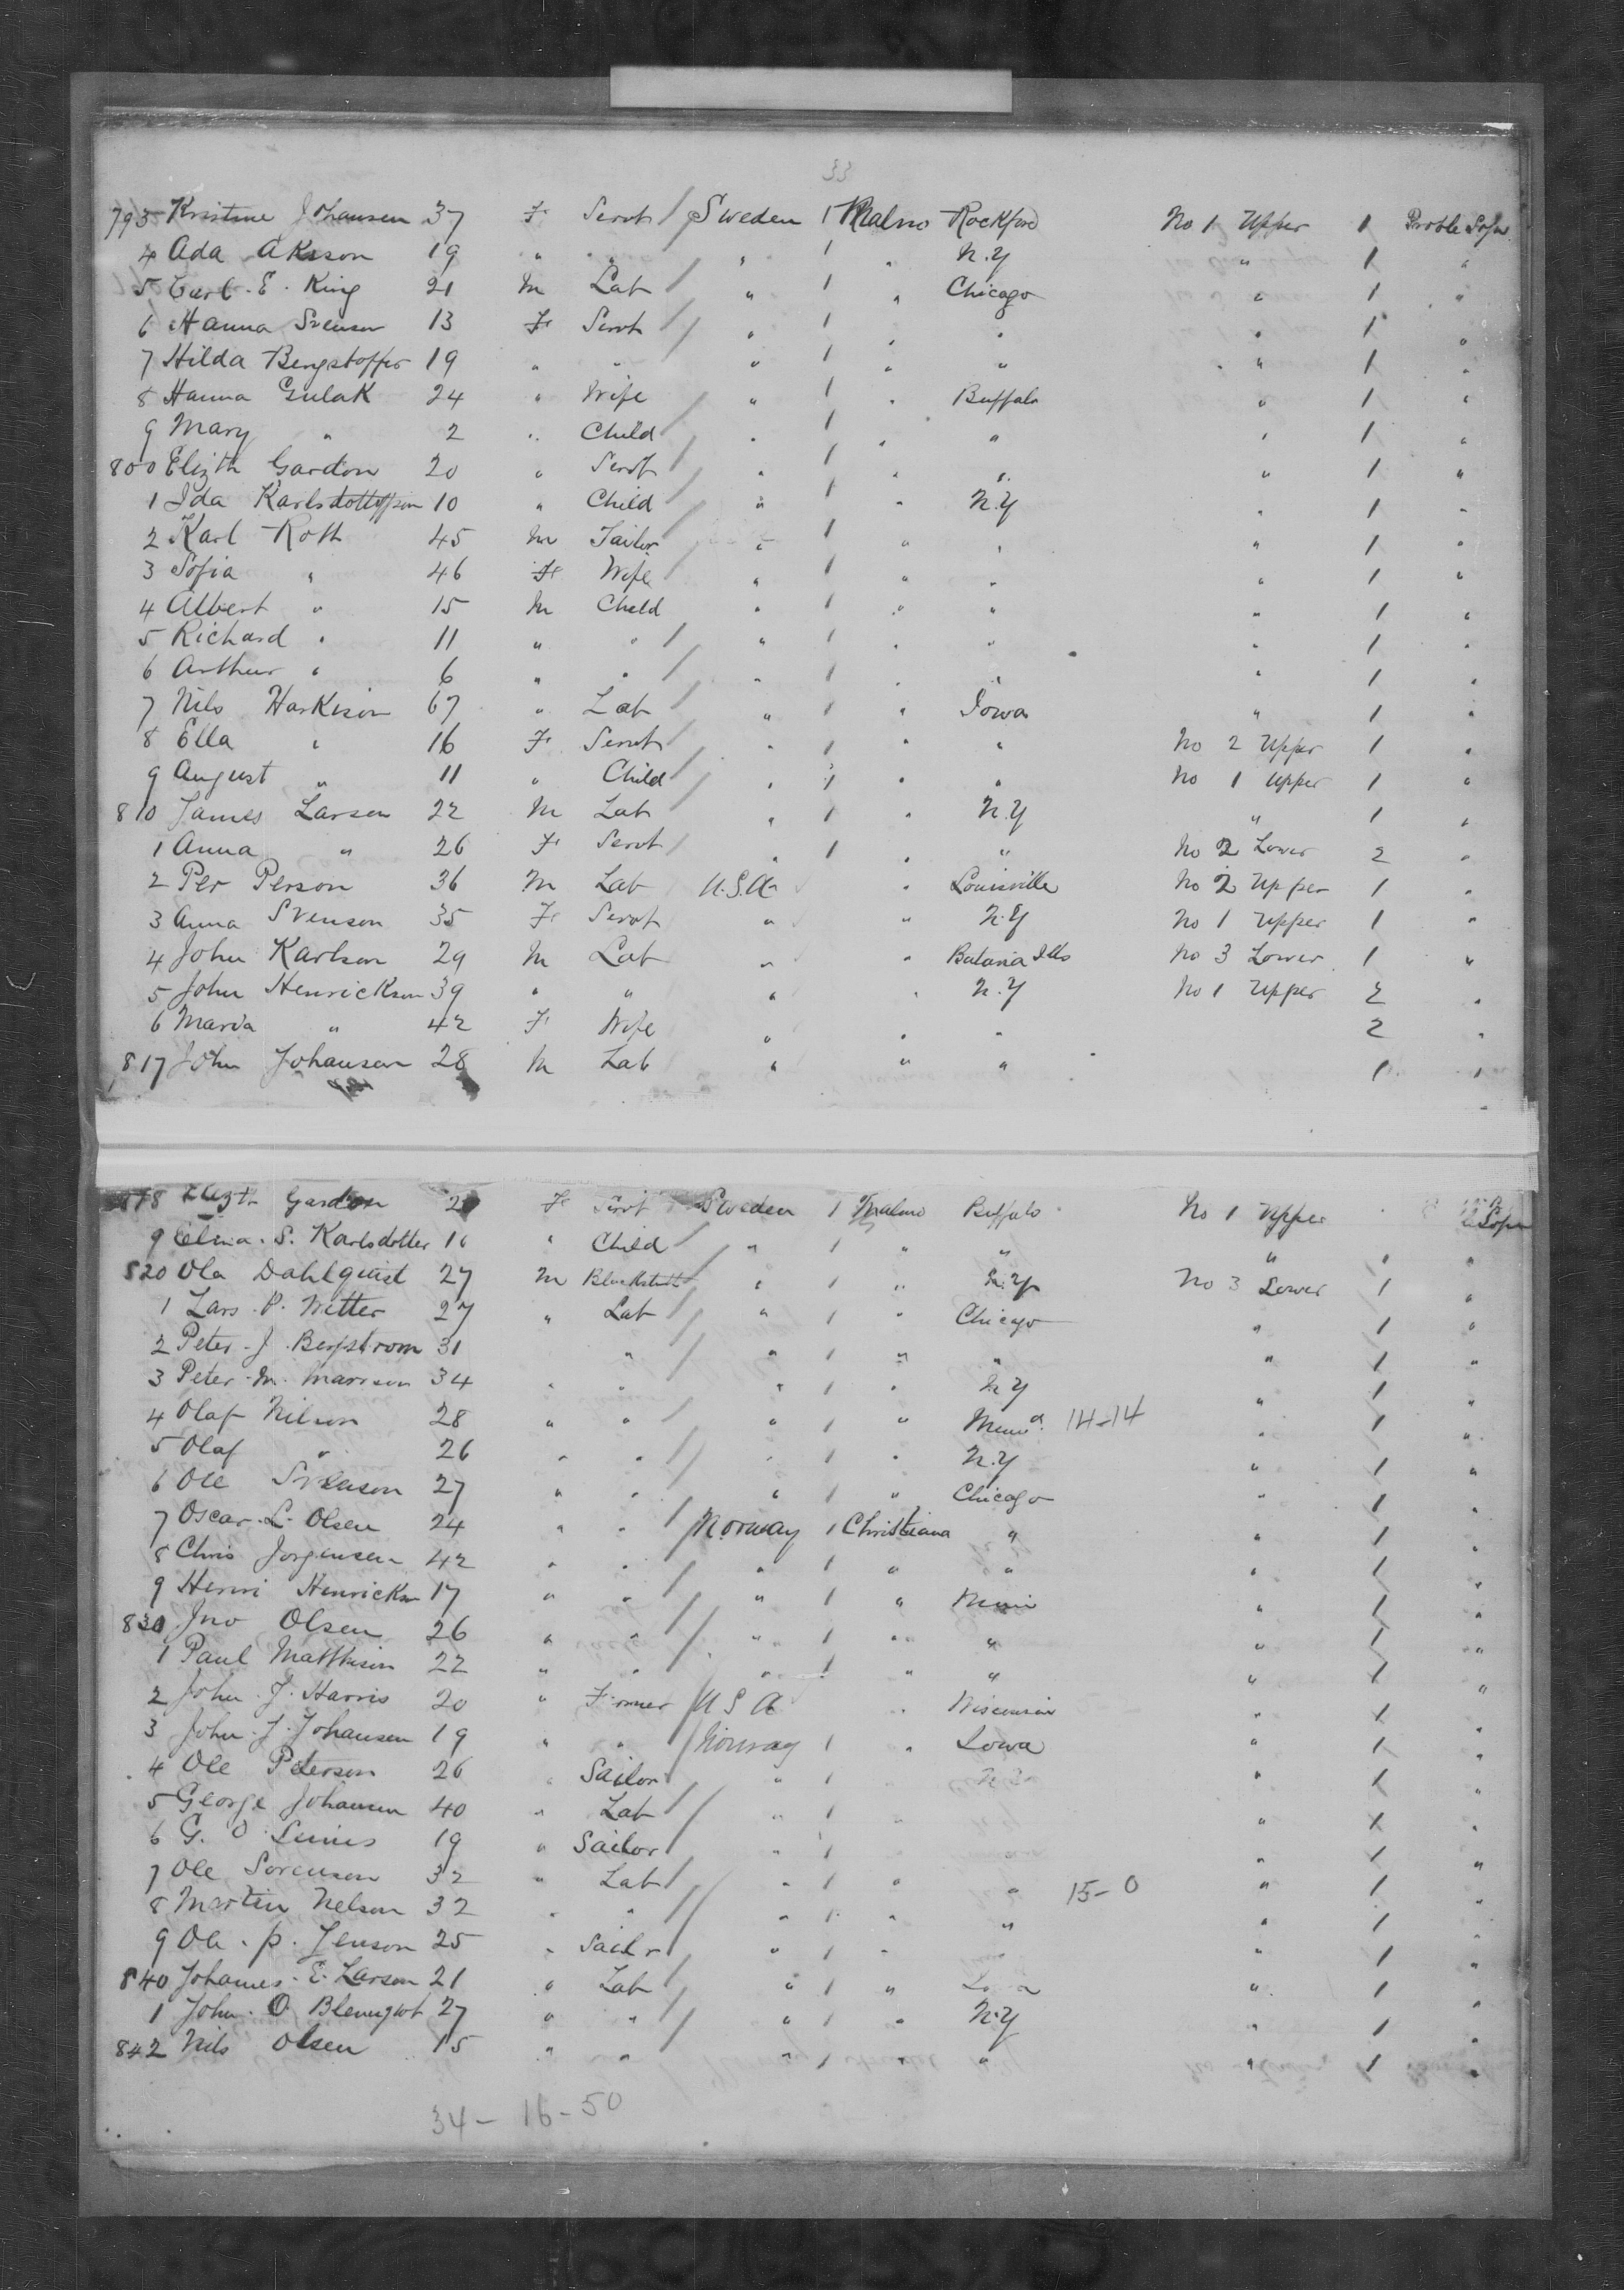 33
793 Kristine Johansen 37 F Servt / Sweden 1 Malmo Rockford No 1 Upper 1 Proble Sojn
4 Ada Aksson 19 " " / " 1 " N.Y " 1 "
5 Carl. E. King 21 M Lab / " 1 " Chicago " 1 "
6 Hanna Svenson 13 F Servt / " 1 " " " 1 "
7 Hilda Bengstoffer 19 " " " 1 " " " 1 "
8 Hanna Gulak 24 " Wife " 1 " Buffalo " 1 "
9 Mary " 2 " Child / " 1 " " " 1 "
800 Elizth Gardon 20 " Servt / " 1 " " " 1 "
1 Ida 10 " Child / " 1 " N.Y " 1 "
2 Karl Roth 45 M Tailor " 1 " " " 1 "
3 Sofia " 46 F Wife " 1 " " " 1 "
4 Albert " 15 M Child " 1 " " " 1 "
5 Richard " 11 " " / " 1 " " " 1 "
6 Arthur " 6 " " / " 1 " " " 1 "
7 Nils Harkison 67 " Lab / " 1 " Iowa " 1 "
8 Ella " 16 F Servt / " 1 " " No 2 Upper 1 "
9 August " 11 " Child / " 1 " " No 1 Upper 1 "
810 James Larsen 22 M Lab / " 1 " N.Y " 1 "
1 Anna " 26 F Servt / " 1 " " No 2 Lower 2 "
2 Per Person 36 M Lab U.S.A " Louisville No 2 Upper 1 "
3 Anna Svenson 35 F Servt " " N.Y No 1 Upper 1 "
4 John Karlson 29 M Lab " " Batavia Ills No 3 Lower 1 "
5 John Henrickson 39 " " " " N.Y No 1 Upper 2 "
6 Maria " 42 F Wife " " " 2 "
817 John Johansen 28 M Lab " " " 1 "
818 Elizth Gardon F Servt Sweden 1 Malmo Buffalo No 1 Upper
9 Elina. S. Karlsdotter " Child / " 1 " " " 1 "
820 Ola Dahlquist 27 M " 1 " N.Y No 3 Lower 1 "
1 Lars. P. Witter 27 " Lab / " 1 " Chicago " 1 "
2 Peter. J. Bergstrom 31 " / " 1 " " " 1 "
3 Peter. M. Marrson 34 " " " 1 " N Y " 1 "
4 Olaf Nilson 28 " " / " 1 " 14-14 " 1 "
5 Olaf " 26 " " / " 1 " N.Y " 1 "
6 Ole Svenson 27 " " " 1 " Chicago " 1 "
7 Oscar. L. Olsen 24 " " / Norway 1 Christiana " " 1 "
8 Chris Jorgensen 42 " " / " 1 " " " 1 "
9 Henri Henrickson 17 " " / " 1 " " 1 "
830 Jno Olsen 26 " " / " 1 " " " 1 "
1 Paul Matthison 22 " " / " 1 " " " 1 "
2 John. J. Harris 20 " Farmer / U S A " Wisconsin " 1 "
3 John. J. Johansen 19 " " / Norway 1 " Iowa " 1 "
4 Ole Peterson 26 " Sailor / " 1 " " 1 "
5 George Johansen 40 " Lab / " 1 " " 1 "
6 G. O 19 " Sailor / " 1 " 1 "
7 Ole Sorenson 32 " Lab / " 1 " " 15-0 " 1 "
8 Martin Nelson 32 " " / " 1 " " " 1 "
9 Ole. P. Jenson 25 " Sailor / " 1 " " 1 "
840 Johannes. E. Larson 21 " Lab / " 1 " " 1 "
1 John. O 27 " " / " 1 " N.Y " 1 "
842 Nils Olsen 15 " " " 1 " " " 1 "
34-16-50